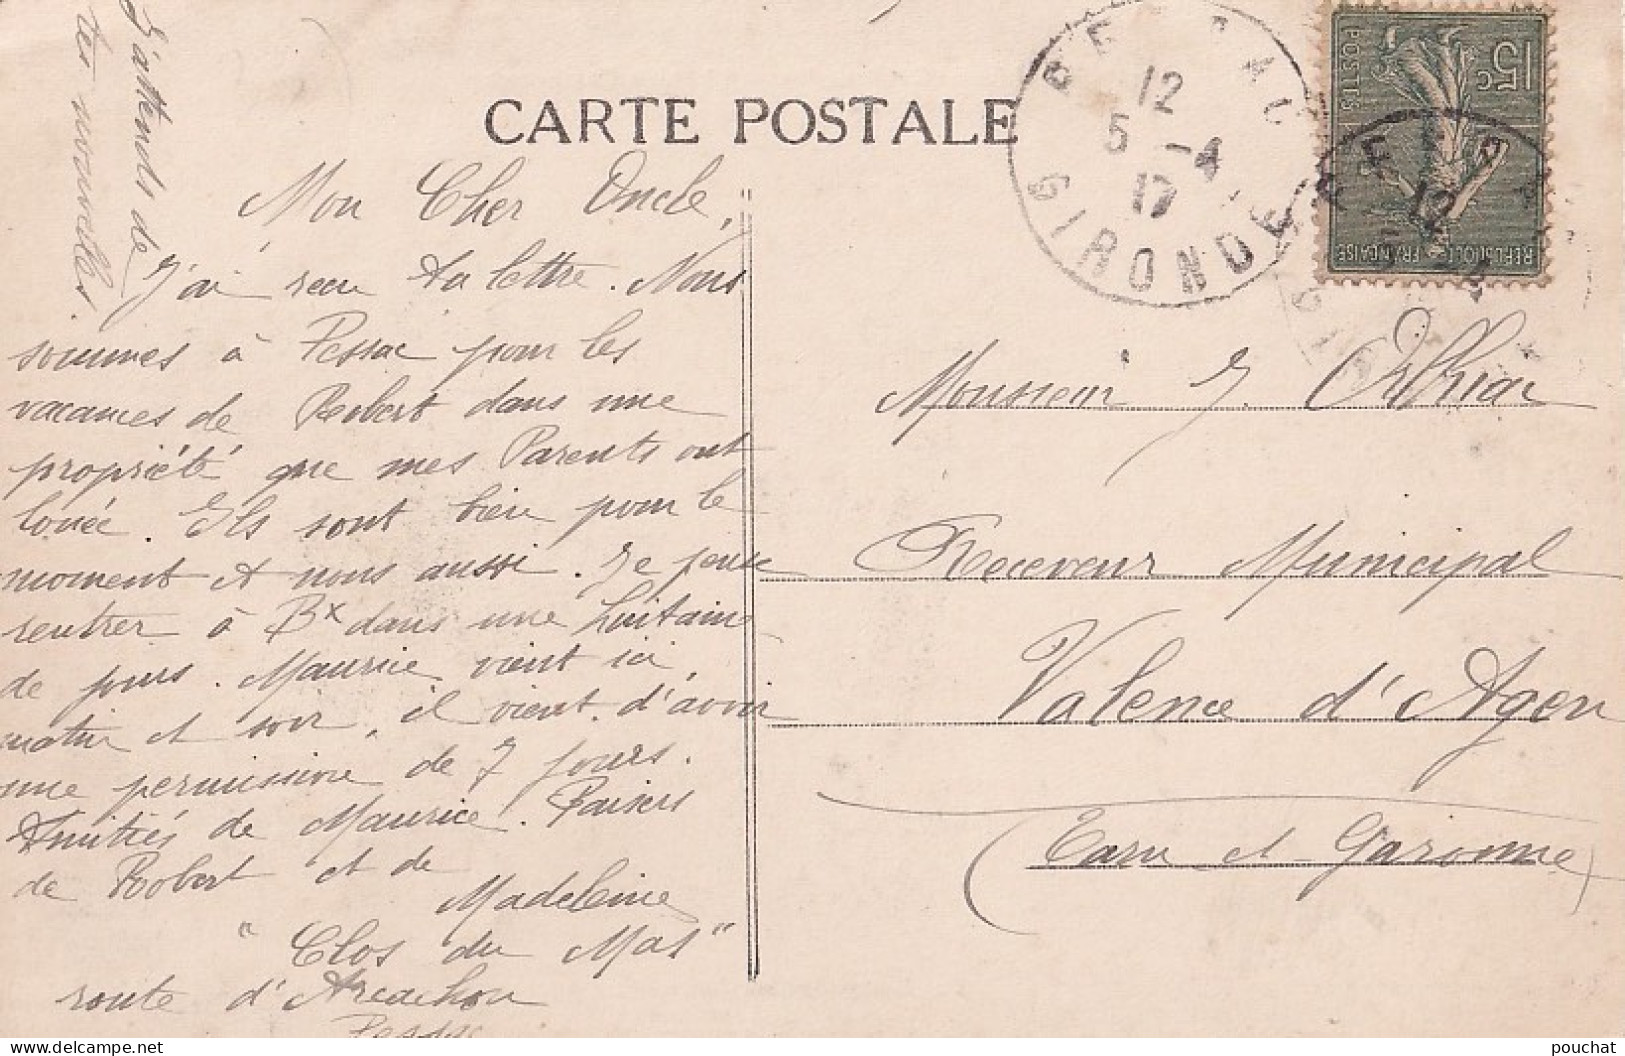 CARTE POSTALE
Mon Cher Oncle,
J'ai recu ta lettre. Nous
sommes à Pessac pour les
vacances de Robert dans une
propriété que mes Parents ont
louée. Ils sont bien pour le
moment et nous aussi. Je pense
rentrer à Bx dans une huitaine
de jours. Maurice vient ici
matin et soir, il vient d'avoir
une permission de 7 jours.
Amitiés de Maurice. Baisers
de Robert et de
Madeleine
"Clos du Mas"
route d'Arcachon
Pessac
J'attends de
tes nouvelles
12
5 -4
17
GIRONDE
15c
POSTES
REPUBLIQUE FRANÇAISE
12
Monsieur J.
Receveur Municipal
Valence d'Agen
(Tarn et Garonne)
pouchat